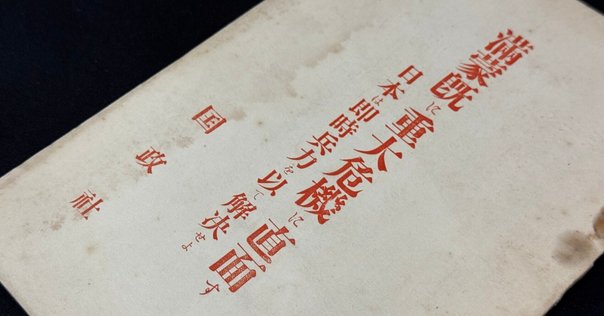 満蒙既に重大危機に直面す
日本は即時兵力を以て解決せよ
国政社